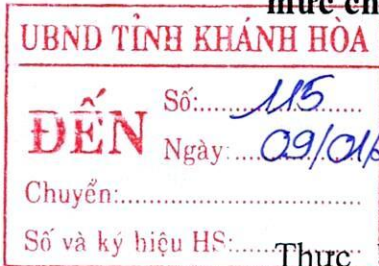 mức ch
UBND TỈNH KHÁNH HÒA
ĐẾN
Số:.......115......
Ngày:....09/01/
Chuyển:................................
Số và ký hiệu HS:............
Thực